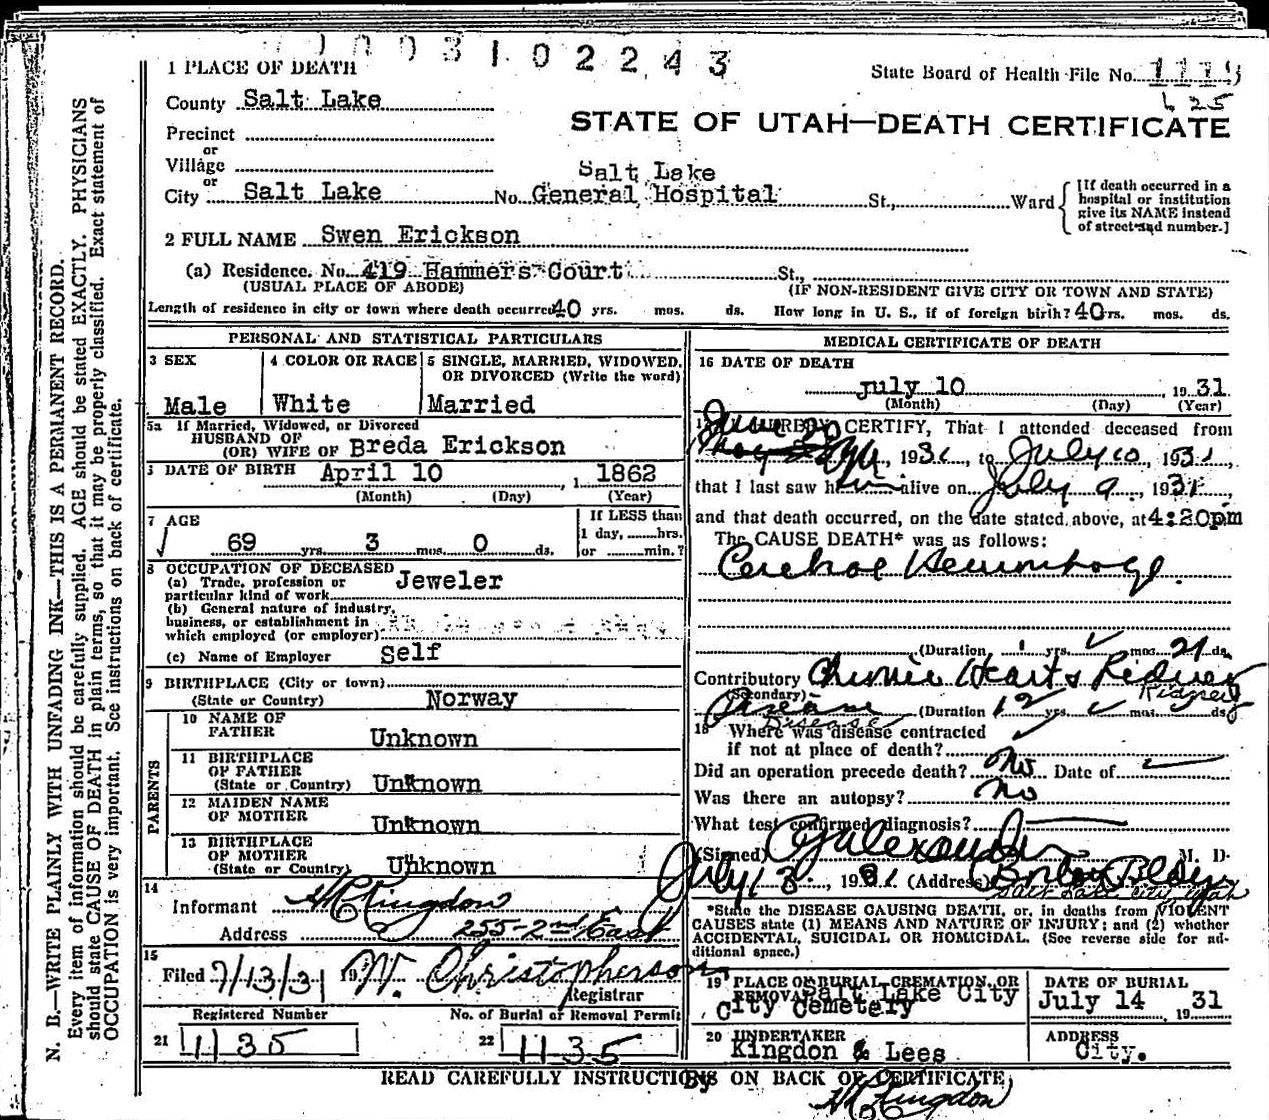 003102243
1 PLACE OF DEATH
State Board of Health File No.
625
County Salt Lake
STATE OF UTAH—DEATH CERTIFICATE
Precinct
or
Village
or
City Salt Lake No. Salt Lake General Hospital St., Ward
[If death occurred in a hospital or institution give its NAME instead of street and number.]
2 FULL NAME Swen Erickson
(a) Residence. No. 419 Hammers Court St.,
(USUAL PLACE OF ABODE) (IF NON-RESIDENT GIVE CITY OR TOWN AND STATE)
Length of residence in city or town where death occurred 40 yrs. mos. ds. How long in U. S., if of foreign birth? 40 yrs. mos. ds.
PERSONAL AND STATISTICAL PARTICULARS
3 SEX
Male
4 COLOR OR RACE
White
5 SINGLE, MARRIED, WIDOWED,
OR DIVORCED (Write the word)
Married
5a If Married, Widowed, or Divorced
HUSBAND OF
(OR) WIFE OF Breda Erickson
DATE OF BIRTH April 10, 1862
(Month) (Day) (Year)
7 AGE
69 yrs. 3 mos. 0 ds.
If LESS than
1 day, hrs.
or min.?
8 OCCUPATION OF DECEASED
(a) Trade, profession or
particular kind of work Jeweler
(b) General nature of industry,
business, or establishment in
which employed (or employer)
(c) Name of Employer Self
9 BIRTHPLACE (City or town)
(State or Country) Norway
PARENTS
10 NAME OF
FATHER Unknown
11 BIRTHPLACE
OF FATHER
(State or Country) Unknown
12 MAIDEN NAME
OF MOTHER Unknown
13 BIRTHPLACE
OF MOTHER
(State or Country) Unknown
14
Informant H C Kingdon
Address 255-2nd East
15
Filed 7/13/31 W. Christopherson
Registrar
Registered Number
21 1135
No. of Burial or Removal Permit
22 1135
MEDICAL CERTIFICATE OF DEATH
16 DATE OF DEATH
July 10, 1931
(Month) (Day) (Year)
HEREBY CERTIFY, That I attended deceased from
June 20, 1931, to July 10, 1931,
that I last saw him alive on July 9, 1931,
and that death occurred, on the date stated above, at 4:20pm
The CAUSE DEATH* was as follows:
Cerebral Hemorrhage.
(Duration yrs. mos. 21 ds.
Contributory Chronic Heart & Kidney
(Secondary) Kidney
Disease (Duration 12 yrs. mos. ds.
Disease
18 Where was disease contracted
if not at place of death?
Did an operation precede death? No Date of
Was there an autopsy? No
What test confirmed diagnosis?
(Signed) Alexander M. D.
July 13, 1931 (Address) Boston Bldg.
Salt Lake City Utah
*State the DISEASE CAUSING DEATH, or, in deaths from VIOLENT
CAUSES state (1) MEANS AND NATURE OF INJURY; and (2) whether
ACCIDENTAL, SUICIDAL OR HOMICIDAL. (See reverse side for ad-
ditional space.)
19 PLACE OF BURIAL, CREMATION, OR
REMOVAL Salt Lake City
City Cemetery
DATE OF BURIAL
July 14, 1931
20 UNDERTAKER
Kingdon & Lees
ADDRESS
City.
READ CAREFULLY INSTRUCTIONS ON BACK OF CERTIFICATE
By H C Kingdon
N. B.—WRITE PLAINLY WITH UNFADING INK—THIS IS A PERMANENT RECORD.
Every item of information should be carefully supplied. AGE should be stated EXACTLY. PHYSICIANS
should state CAUSE OF DEATH in plain terms, so that it may be properly classified. Exact statement of
OCCUPATION is very important. See instructions on back of certificate.